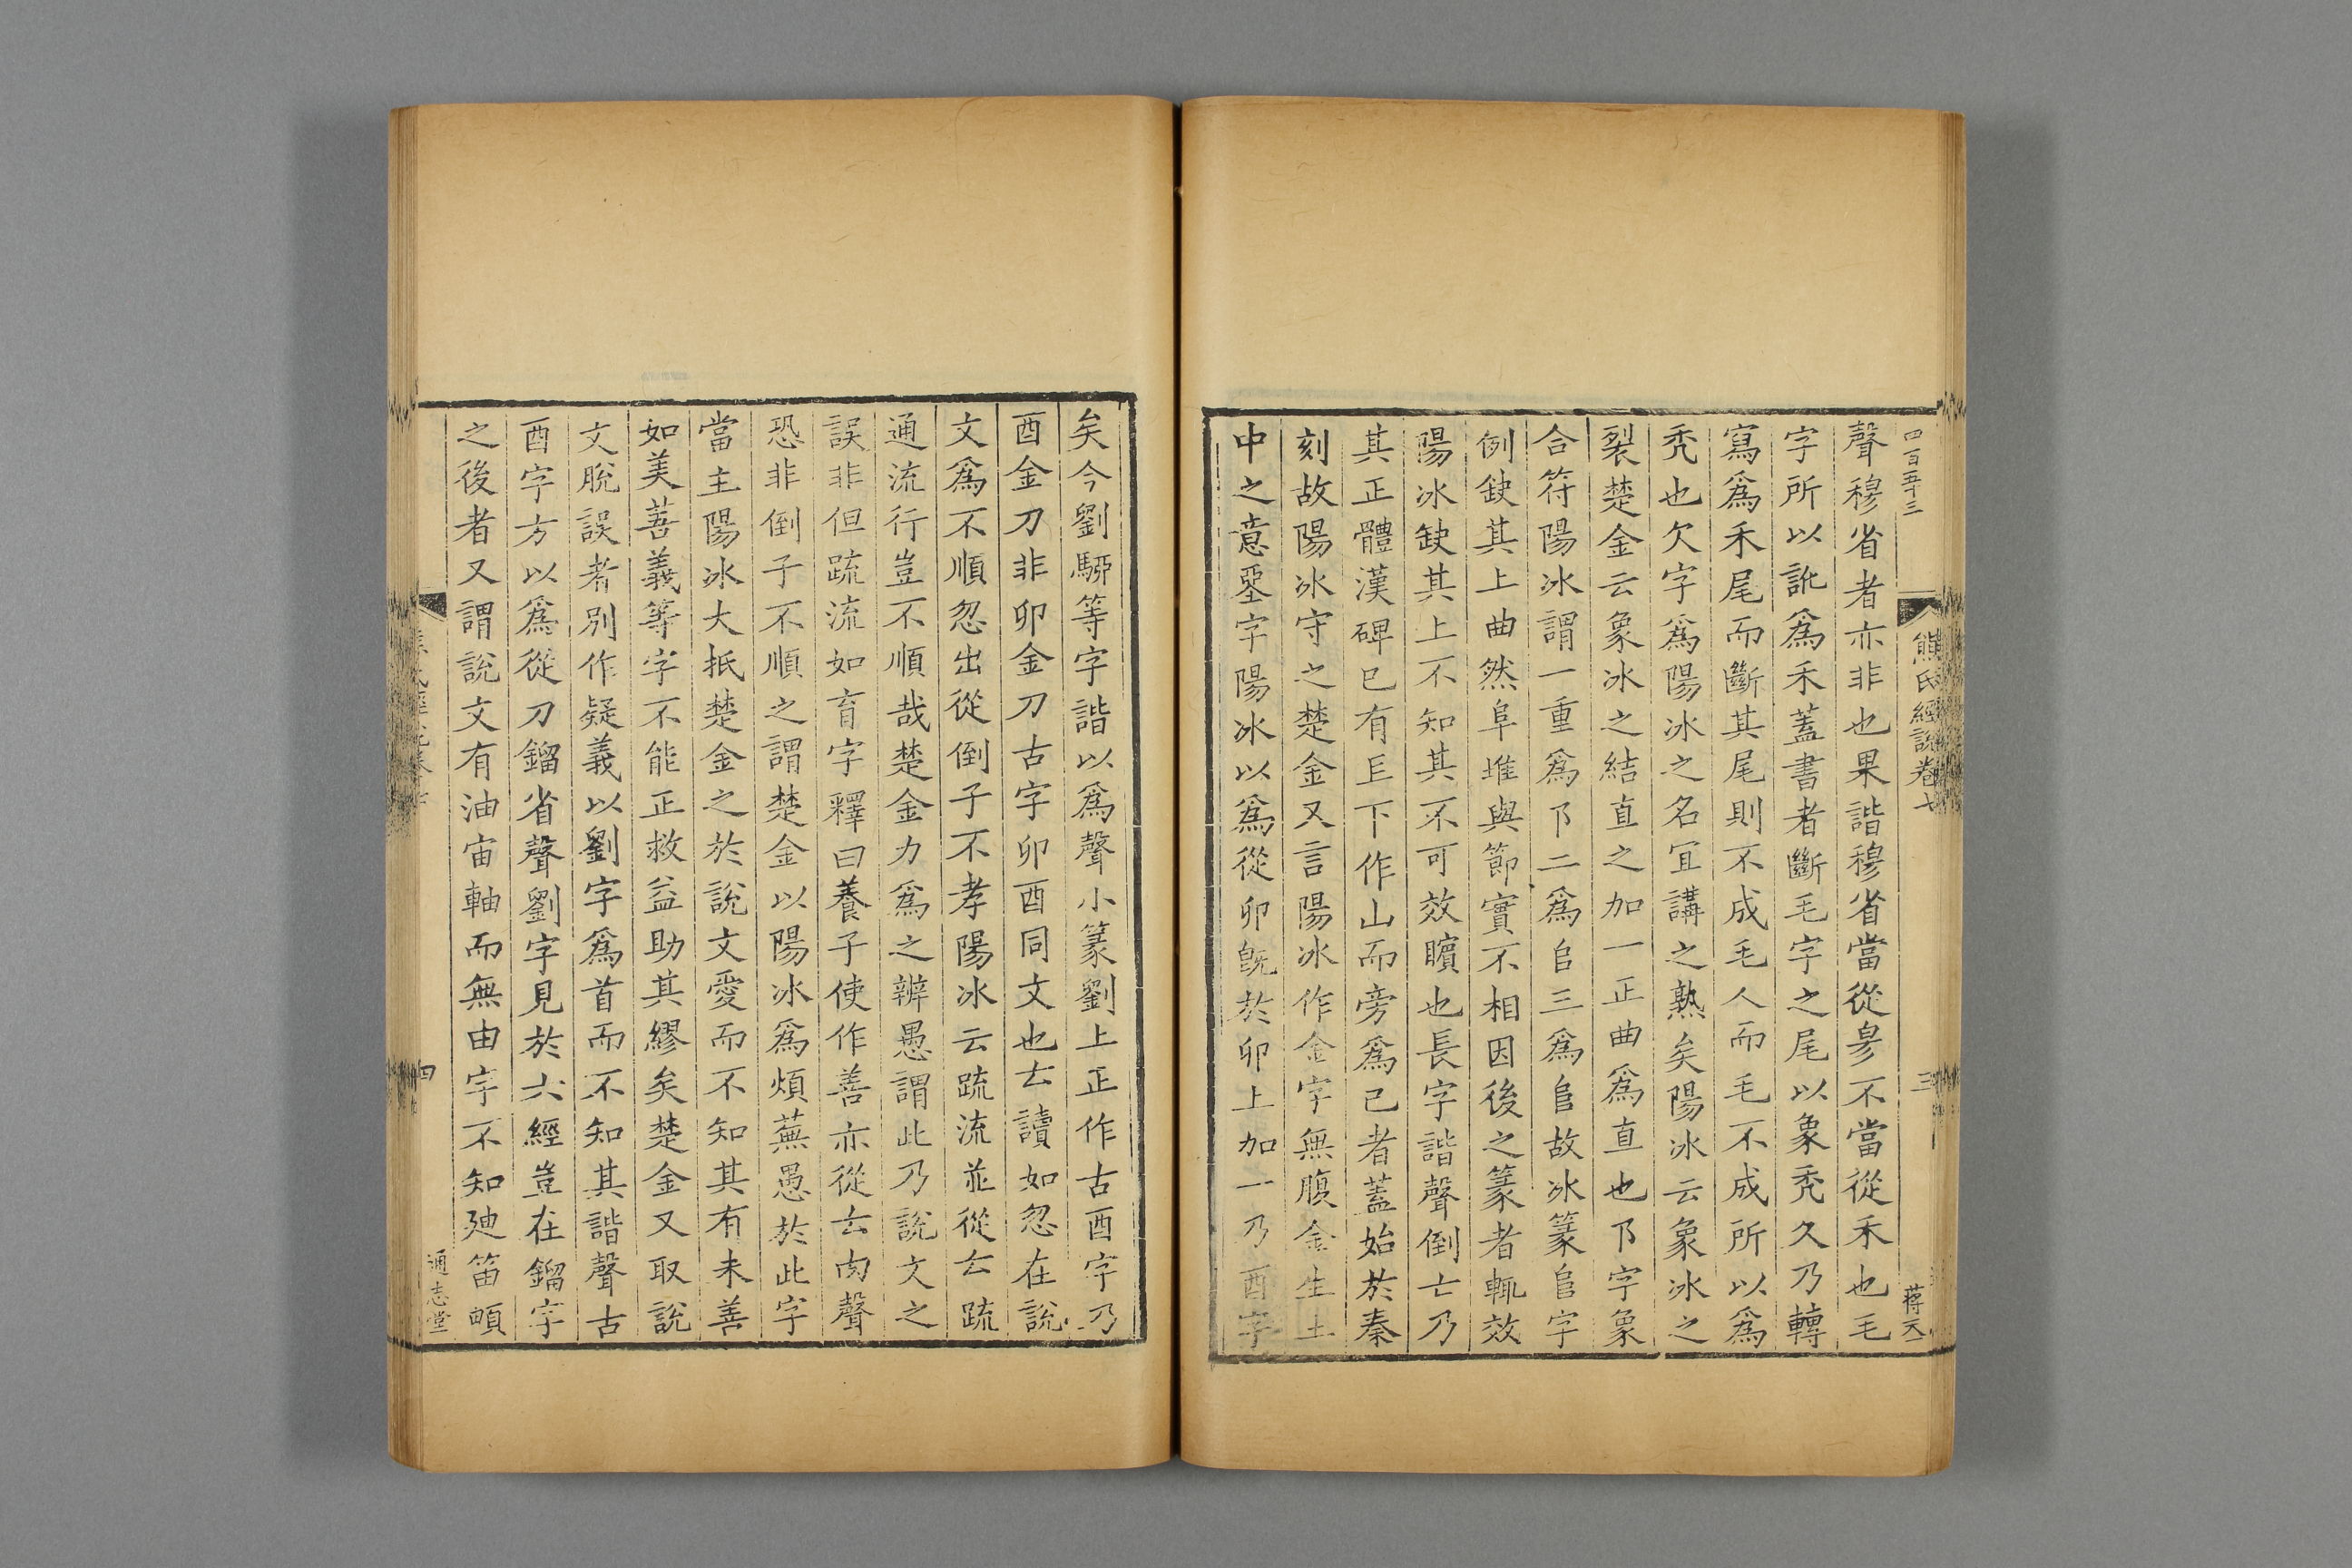 四百五十三
熊氏經說卷七
三
蔣天一
聲穆省者亦非也果諧穆省當從㣎不當從禾也毛
字所以訛爲禾蓋書者斷毛字之尾以象禿久乃轉
寫爲禾尾而斷其尾則不成毛人而毛不成所以爲
禿也欠字爲陽冰之名冝講之熟矣陽冰云象冰之
裂楚金云象冰之結直之加一正曲爲直也卪字象
合符陽冰謂一重爲卪二爲㠯三爲𠂤故冰篆𠂤字
例缺其上曲然阜堆與節實不相因後之篆者輒效
陽冰缺其上不知其不可效矉也長字諧聲倒亡乃
其正體漢碑已有𨱗下作山而旁爲己者蓋始於秦
刻故陽冰守之楚金又言陽冰作金字無腹金生土
中之意堊字陽冰以爲從卯旣於卯上加一乃酉字
矣今劉駵等字諧以爲聲小篆劉上正作古酉字乃
酉金刀非卯金刀古字卯酉同文也𠫓讀如忽在說
文爲不順忽出從倒子不孝陽冰云疏流並從𠫓疏
通流行豈不順哉楚金力爲之辨愚謂此乃說文之
誤非但疏流如育字釋曰養子使作善亦從𠫓肉聲
恐非倒子不順之謂楚金以陽冰爲煩蕪愚於此字
當主陽冰大抵楚金之於說文愛而不知其有未善
如美善義等字不能正救益助其繆矣楚金又取說
文脫誤者別作疑義以劉字爲首而不知其諧聲古
酉字方以爲從刀鎦省聲劉字見於六經豈在鎦字
之後者又謂說文有油宙軸而無由字不知廸笛䪼
四
通志堂